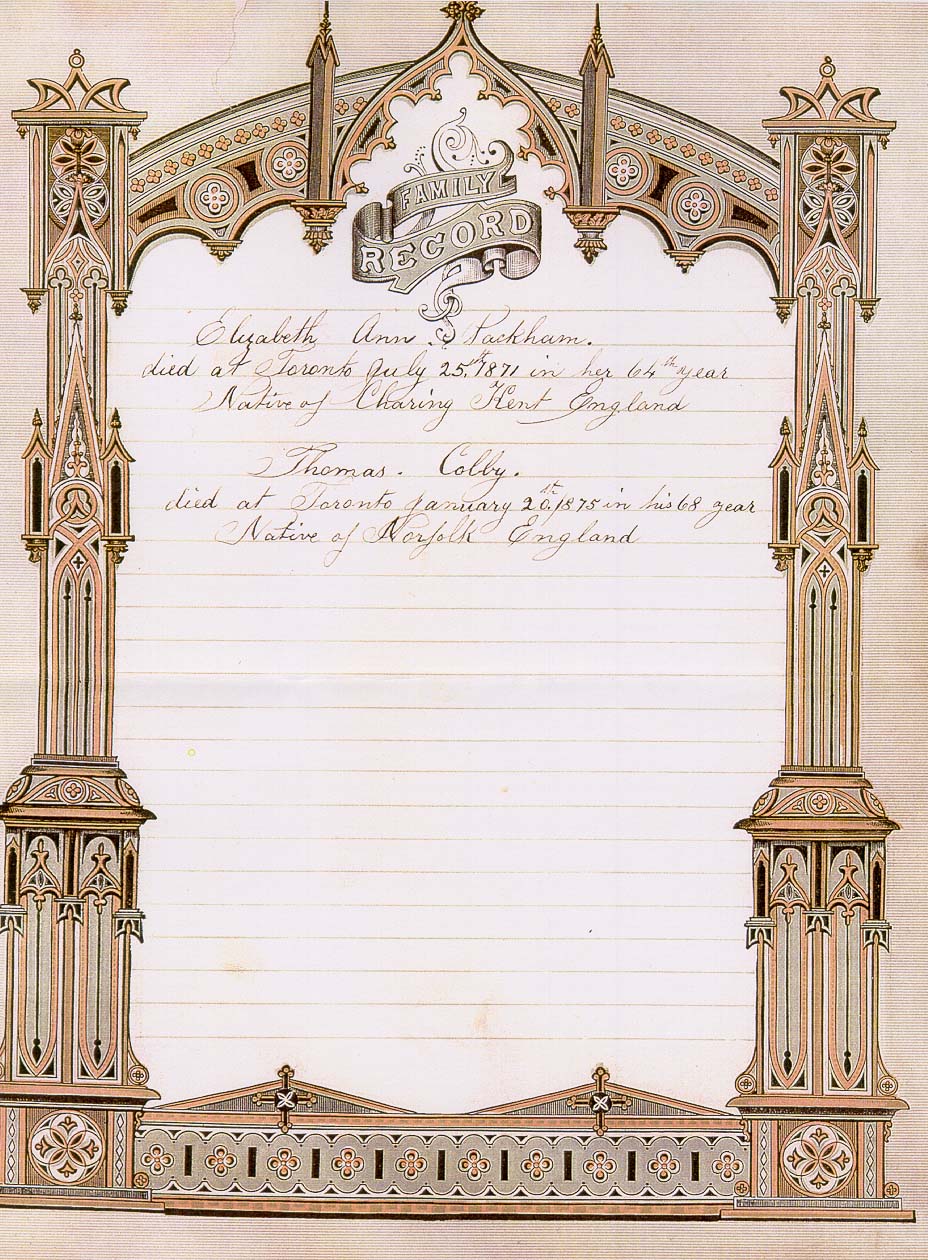 FAMILY
RECORD
Elizabeth Ann Packham.
died at Toronto July 25th, 1871 in her 64th year
Native of Charing Kent England
Thomas. Colby.
died at Toronto January 20th, 1875 in his 68 year
Native of Norfolk England